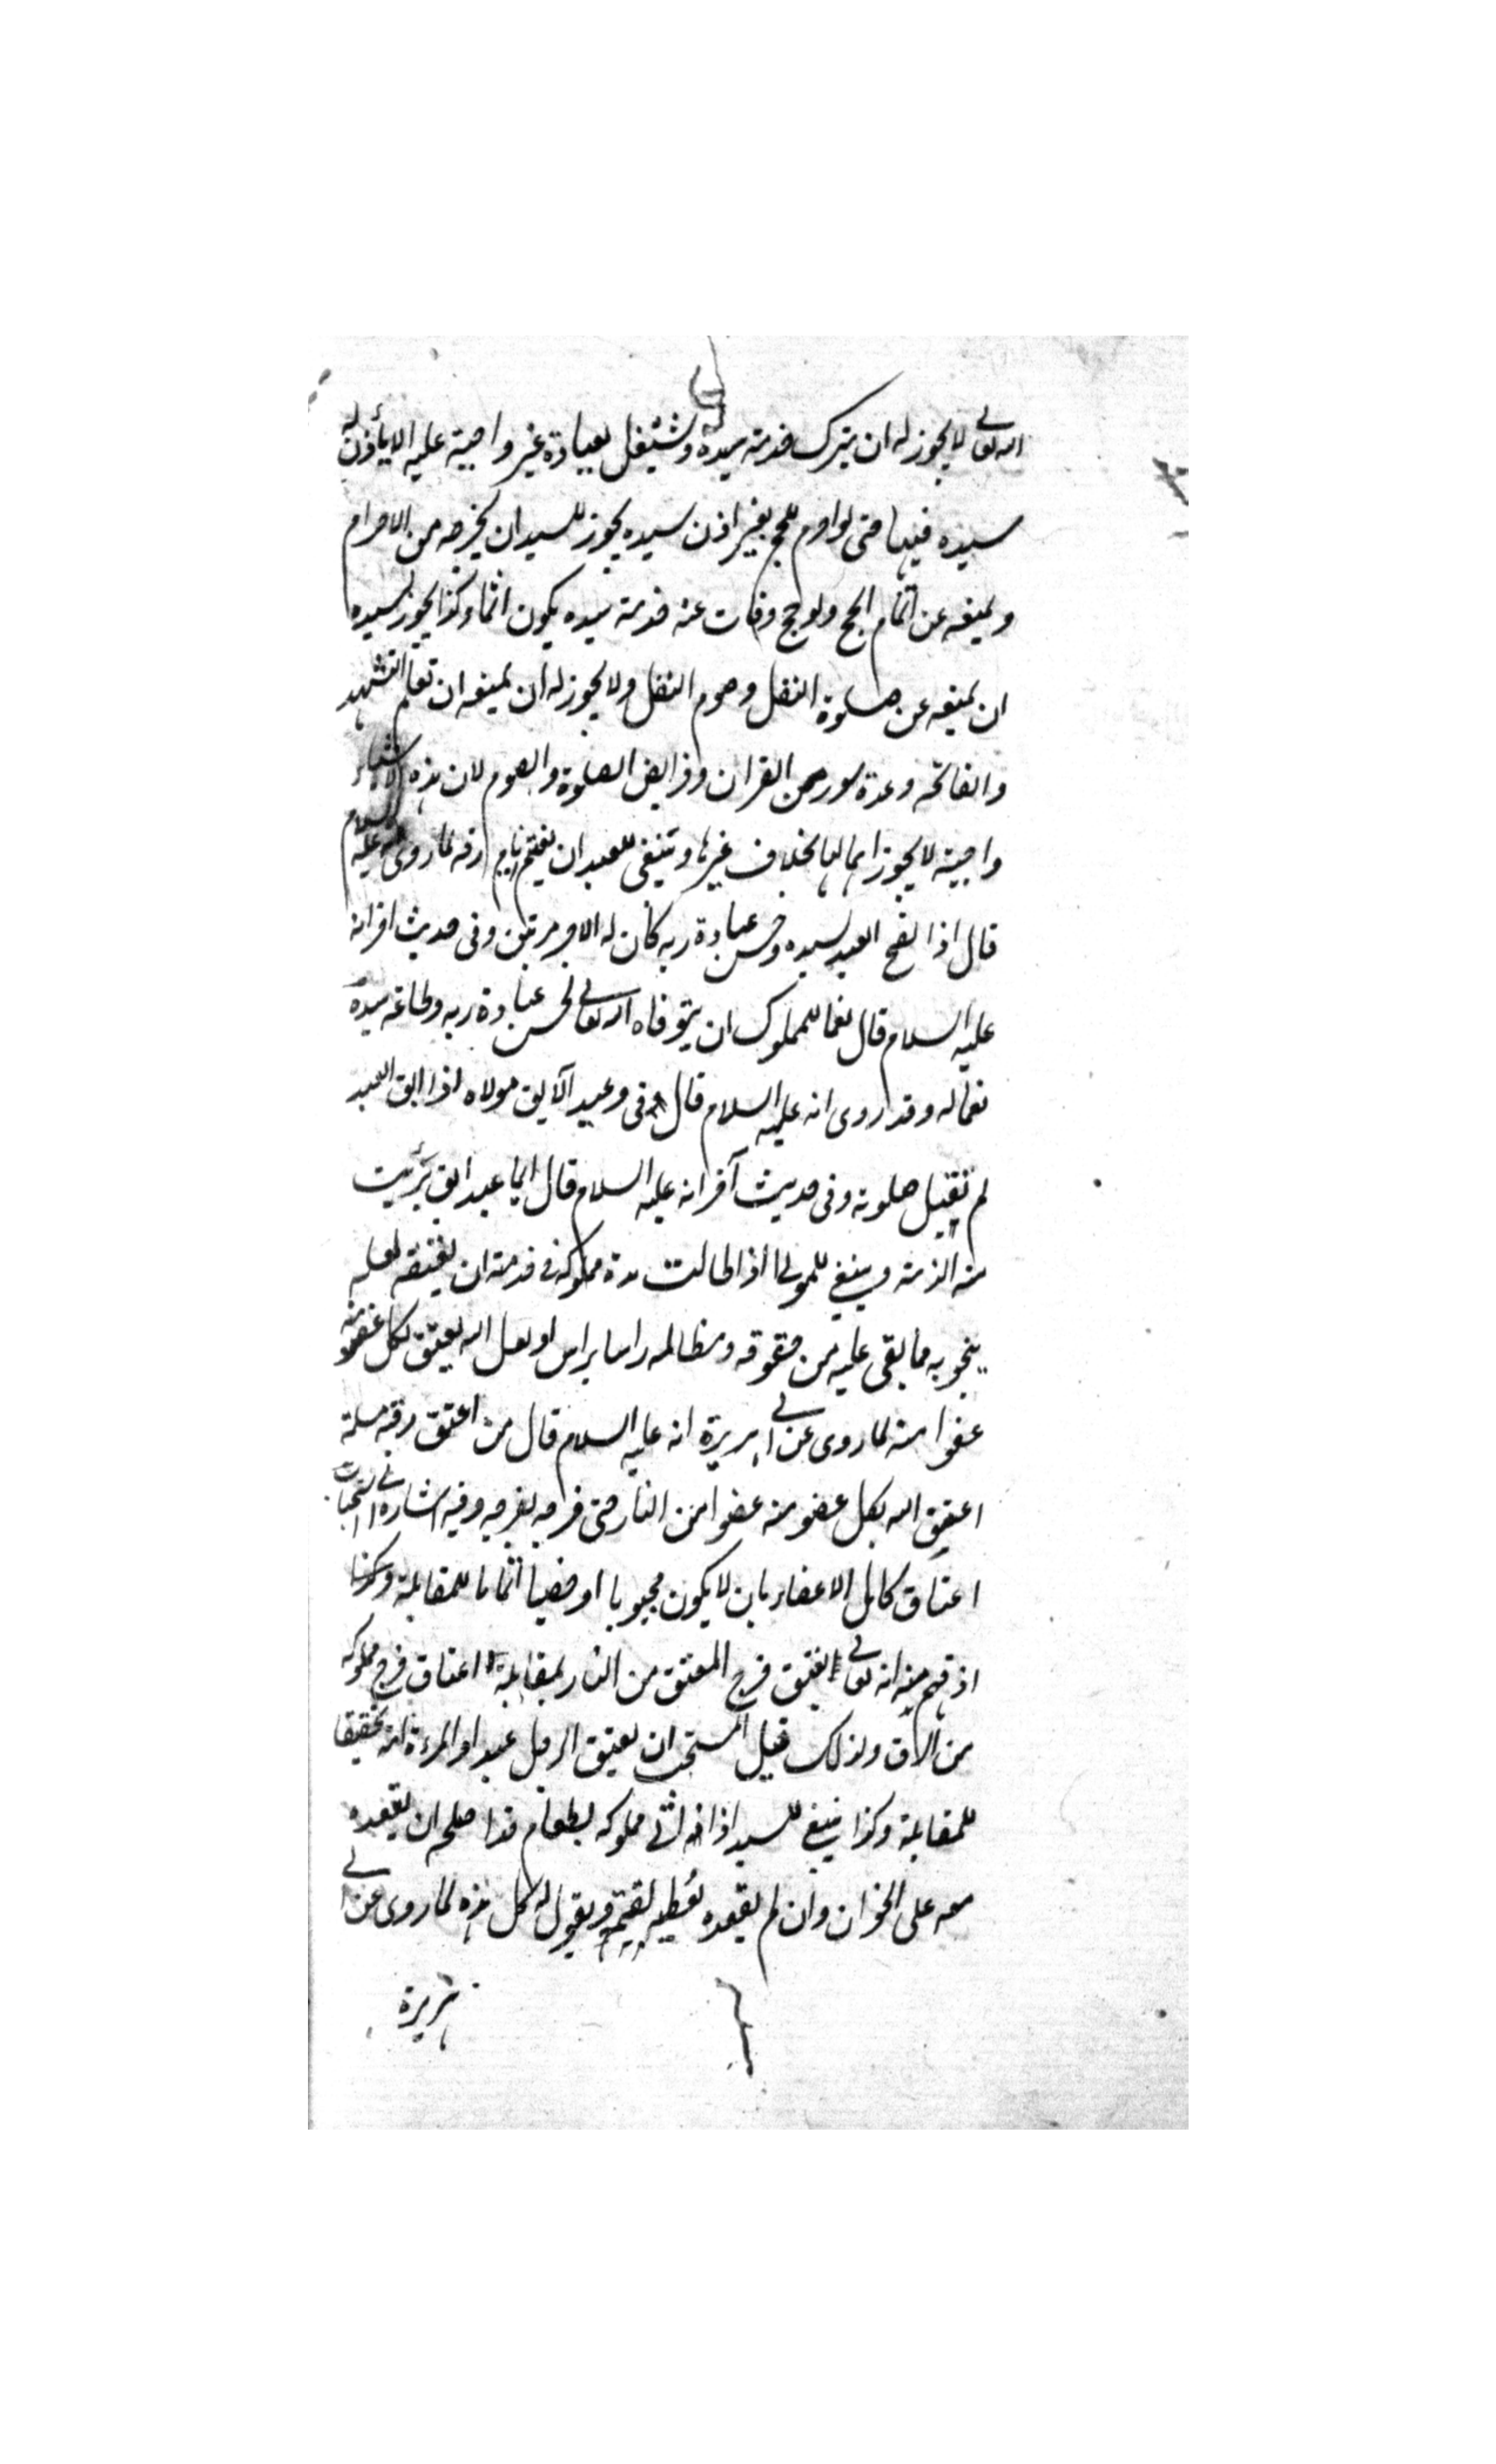 الله تعالى لا يجوز له ان يترك خدمة سيده ويشتغل بعبادة غير واجبة عليه الا ياذن له
سيده فيها حتى لو احرم للحج بغير اذن سيده يجوز للسيد ان يخرجه من الاحرام
ويمنعه عن اتمام الحج ولو حج وفات عنه خدمة سيده يكون اثما وكذا يجوز لسيده
ان يمنعه عن صلوة النفل وصوم النفل ولا يجوز له ان يمنعه ان تعلم التشهد
والفاتحه وعدة سور من القران وفرايض الصلوة والصوم لان هذه الاشياء
واجبة لا يجوز اهمالها بخلاف غيرها وينبغى للعبد ان يغتنم ايام رقه لما روى انه عليه السلام
قال اذا نصح العبد لسيده وحسن عبادة ربه كان له الاجر مرتين وفى حديث اخر انه
عليه السلام قال نعما للمملوك ان يتوفاه الله تعالى بحسن عبادة ربه وطاعة سيده
نعما له وقد روى انه عليه السلام قال فى وعيد الآبق مولاه اذا ابق العبد
لم تقبل صلوته وفى حديث آخر انه عليه السلام قال ايما عبد ابق برئت
منه الذمة وينبغى للمولى اذا طالت مدة مملوكه فى خدمته ان يعتقه لعله
ينجو به مما بقى عليه من حقوقه ومظالمه راسا براس او لعل الله يعتق بكل عضو منه
عضوا منه لما روى عن ابى هريرة انه عليه السلام قال من اعتق رقبة مسلمة
اعتق الله بكل عضو منه عضوا من النار حتى فرجه بفرجه وفيه اشارة الى استحباب
اعتاق كامل الاعضاء بان لا يكون مجبوبا او خصيا اتماما للمقابلة وكذا
اذ فهم منه انه تعالى يعتق فرج المعتق من النار بمقابلة اعتاق فرج مملوكه
من الرق ولذلك قيل المستحب ان يعتق الرجل عبدا والمرءة امة تحقيقا
للمقابلة وكذا ينبغى للسيد اذا اتى مملوكه بطعام قد اصلحه ان يقعده
معه على الخوان وان لم يقعده يعطيه لقيمة ويقول له كل هذه لما روى عن ابى
هريرة